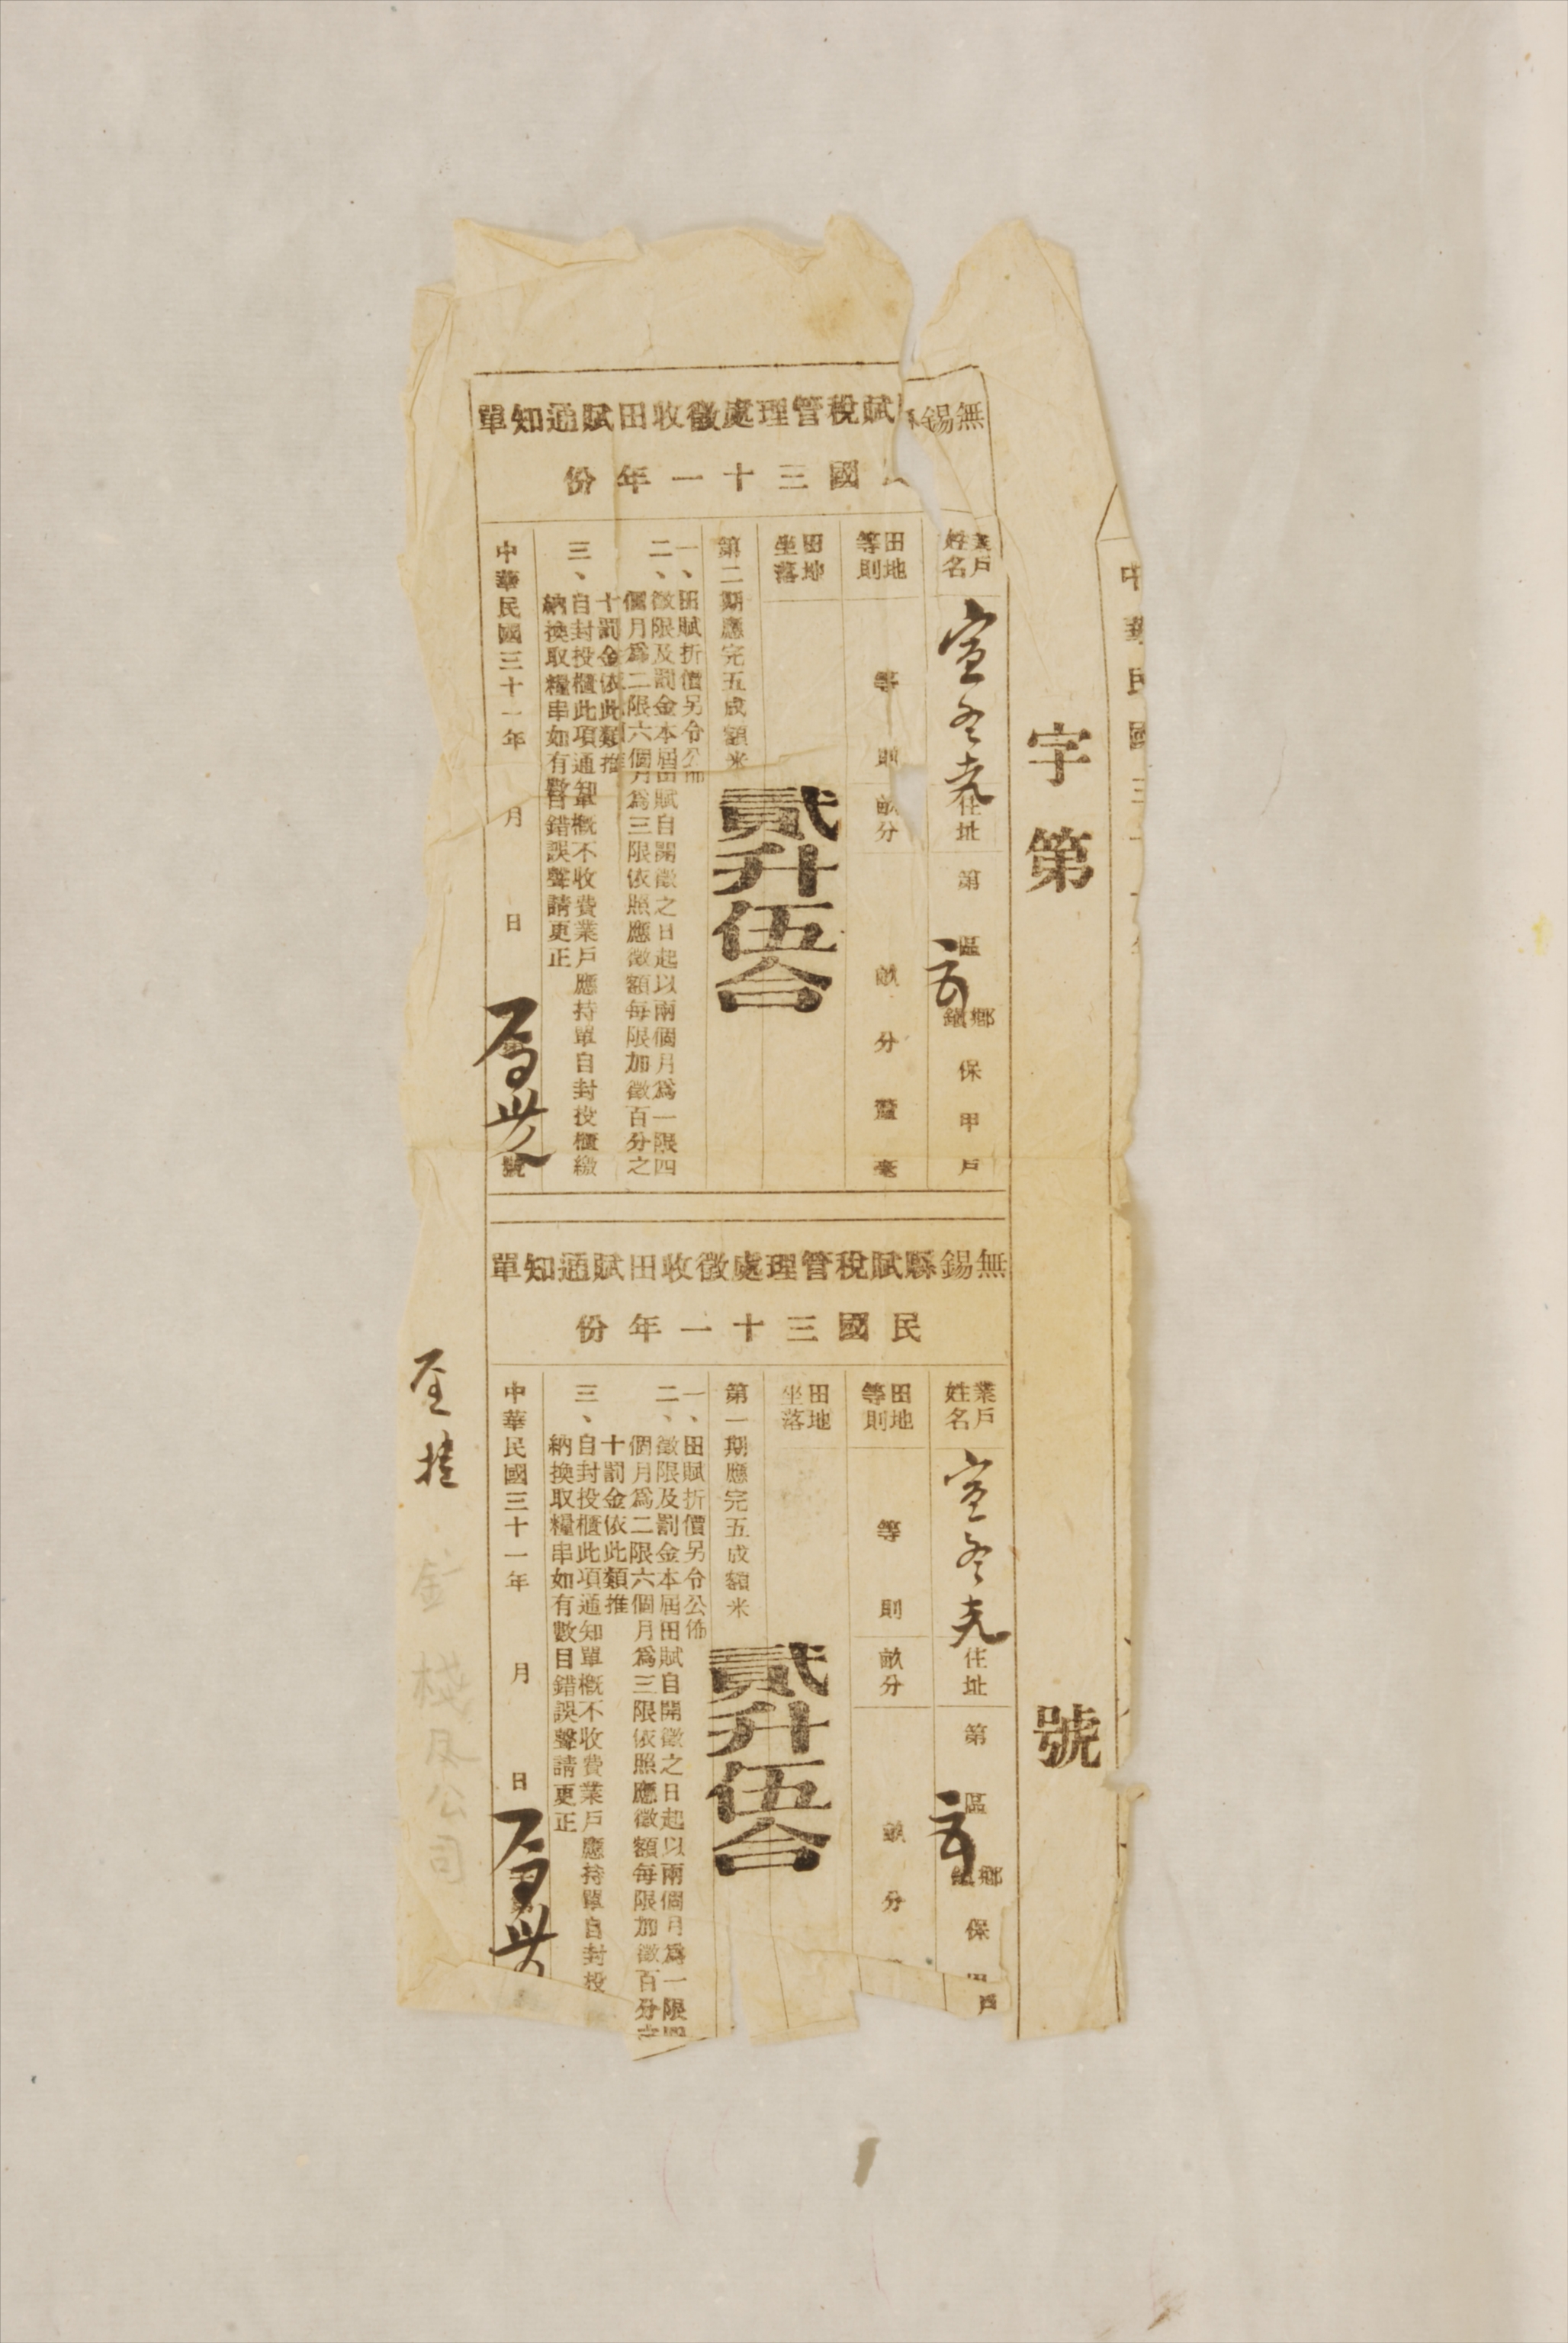 中華民國三十一年
字第　號
無錫縣賦稅管理處徵收田賦通知單
國三十一年份
業戶姓名
宣冬堯
住址
第　區　鄉鎮　保　甲　戶
田地等則
等　則
畝分
畝　分　釐　毫
田地坐落
第二期應完五成額米
貳升伍合
一、田賦折價另令公佈
二、徵限及罰金本屆田賦自開徵之日起以兩個月爲一限四
個月爲二限六個月爲三限依照應徵額每限加徵百分之
十罰金依此類推
三、自封投櫃此項通知單概不收費業戶應持單自封投櫃繳
納換取糧串如有數目錯誤聲請更正
中華民國三十一年　月　日　號
無錫縣賦稅管理處徵收田賦通知單
民國三十一年份
業戶姓名
宣冬堯
住址
第　區　鄉鎮　保　甲　戶
田地等則
等　則
畝分
畝　分
田地坐落
第一期應完五成額米
貳升伍合
一、田賦折價另令公佈
二、徵限及罰金本屆田賦自開徵之日起以兩個月爲一限四
個月爲二限六個月爲三限依照應徵額每限加徵百分之
十罰金依此類推
三、自封投櫃此項通知單概不收費業戶應持單自封投
納換取糧串如有數目錯誤聲請更正
中華民國三十一年　月　日
公司